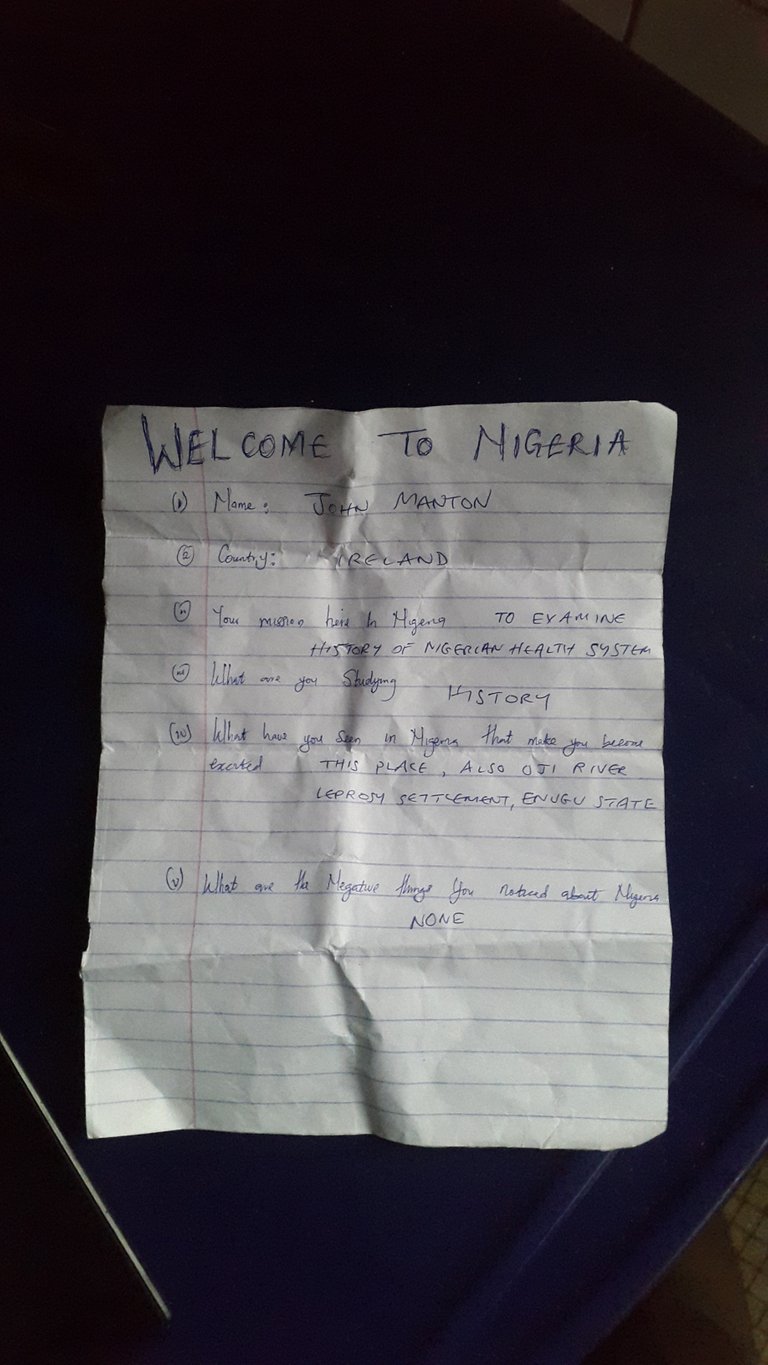 WELCOME TO NIGERIA
(i) Name: JOHN MANTON
(2) Country: IRELAND
(iii) Your mission here In Nigeria TO EXAMINE
HISTORY OF NIGERIAN HEALTH SYSTEM
(iii) What are you Studying HISTORY
(iv) What have you Seen in Nigeria that make you become
excited THIS PLACE, ALSO OJI RIVER
LEPROSY SETTLEMENT, ENUGU STATE
(v) What are the Negative things You noticed about Nigeria
NONE